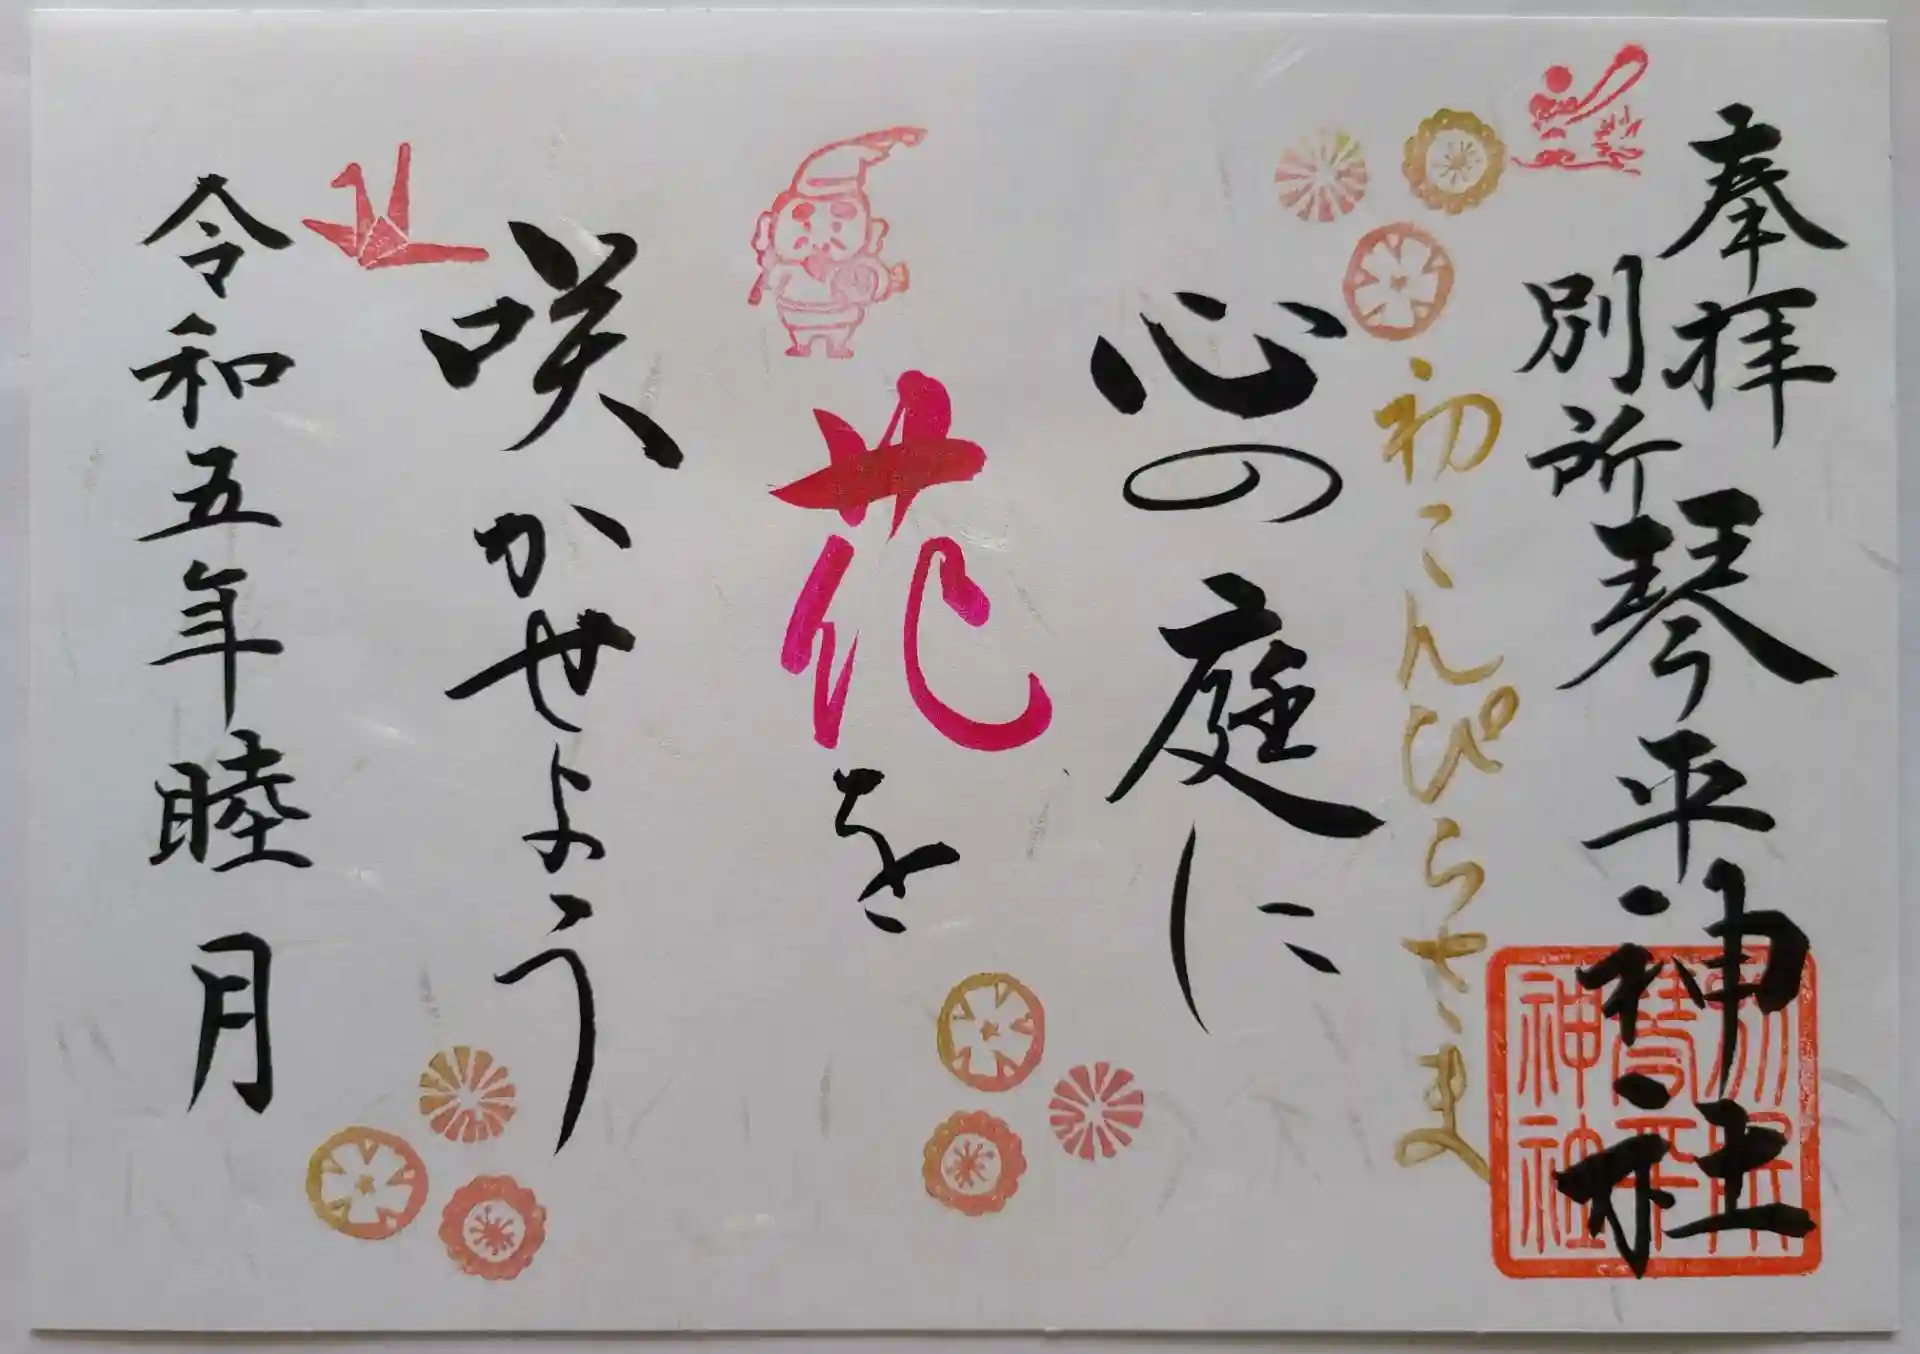 奉拝
別所琴平神社
初こんぴらさま
心の庭に
花を
咲かせよう
令和五年睦月
別所
琴平
神社